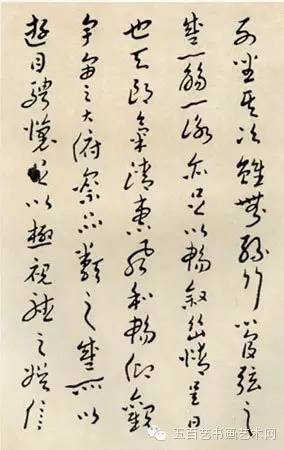 列坐其次雖無絲竹管弦之
盛一觴一詠亦足以暢敘幽情是日
也天朗氣清惠風和暢仰觀
宇宙之大俯察品類之盛所以
遊目騁懷足以極視聽之娛信
五百艺书画艺术网